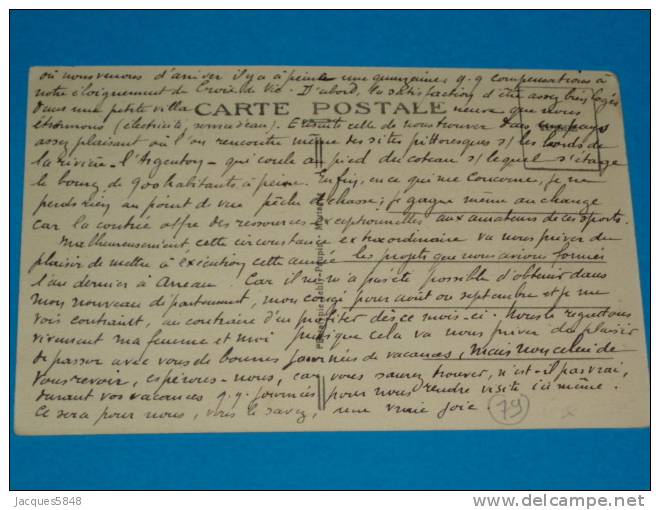 où nous venons d'arriver il y a à peine une quinzaine, q.q compensations à
notre éloignement de Croix de Vie. D'abord, la satisfaction d'être assez bien logés
dans une petite villa CARTE POSTALE neuve que nous
étrennons (électricité, service d'eau). Ensuite celle de nous trouver dans un pays
assez plaisant où l'on rencontre même des sites pittoresques s/ les bords de
la rivière - l'Argenton - qui coule au pied du coteau s/ lequel s'étage
le bourg de 900 habitants à peine. Enfin, en ce qui me concerne, je ne
perds rien au point de vue pêche & chasse; je gagne même au change
car la contrée offre des ressources exceptionnelles aux amateurs de ces sports.
Malheureusement cette circonstance extraordinaire va nous priver du
plaisir de mettre à exécution cette année les projets que nous avions formés
l'an dernier à Arreau. Car il ne m'a pas été possible d'obtenir dans
mon nouveau département, mon congé pour août ou septembre et je me
vois contraint, au contraire d'en profiter dès ce mois-ci. Nous le regrettons
vivement ma femme et moi puisque cela va nous priver du plaisir
de passer avec vous de bonnes journées de vacances, mais non celui de
vous revoir, espérons-nous, car vous saurez trouver, n'est-il pas vrai,
durant vos vacances q.q. journées pour nous rendre visite ici même.
Ce sera pour nous, vous le savez, une vraie joie
79
Jacques5848
delcampe.net